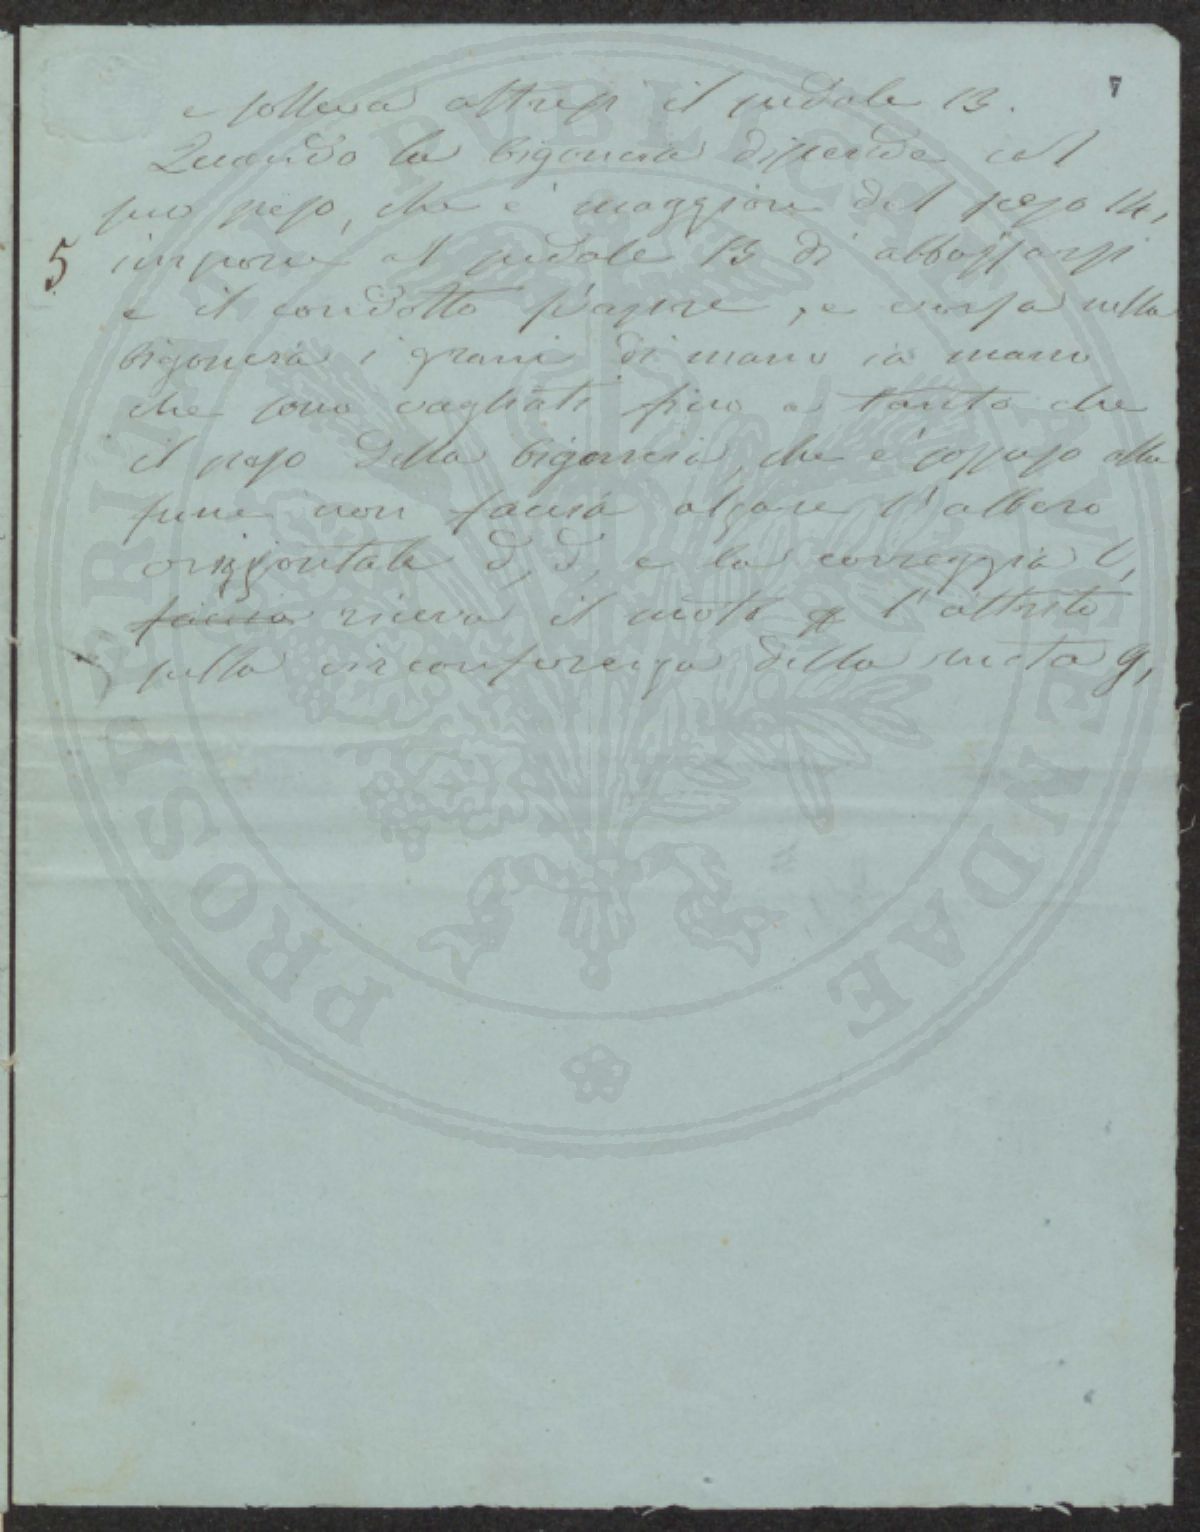 7
e solleva altresi il pedale 13.
Quando la bigoncia discende col
suo peso, che è maggiore del peso 14,
5 impone al pedale 13 di abbassarsi
e il condotto s'apre, e versa nella
bigoncia i grani di mano in mano
che sono vagliati fino a tanto che
il peso della bigoncia, che è sospeso alla
fune non faccia alzare l'albero
orizzontale d, d, e la correggia l,
faccia riceva il moto l'attrito
sulla circonferenza della ruota g,
PROSPERITATI PVBLICAE AVGENDAE